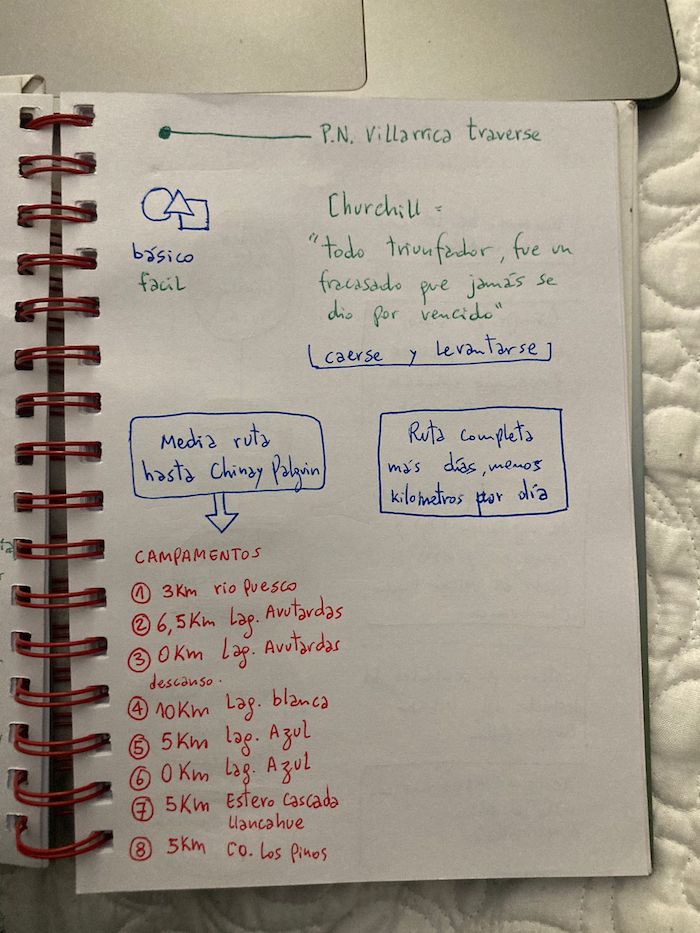 P.N. Villarrica traverse
básico
facil
Churchill =
"todo triunfador, fue un
fracasado que jamás se
dio por vencido"
caerse y Levantarse
Media ruta
hasta Chinay Palguin
Ruta completa
más días, menos
kilometros por día
CAMPAMENTOS
① 3Km rio puesco
② 6,5Km Lag. Avutardas
③ 0Km Lag. Avutardas
descanso.
④ 10Km Lag. blanca
⑤ 5Km Lag. Azul
⑥ 0Km Lag. Azul
⑦ 5Km Estero Cascada
Llancahue
⑧ 5Km CO. Los Pinos